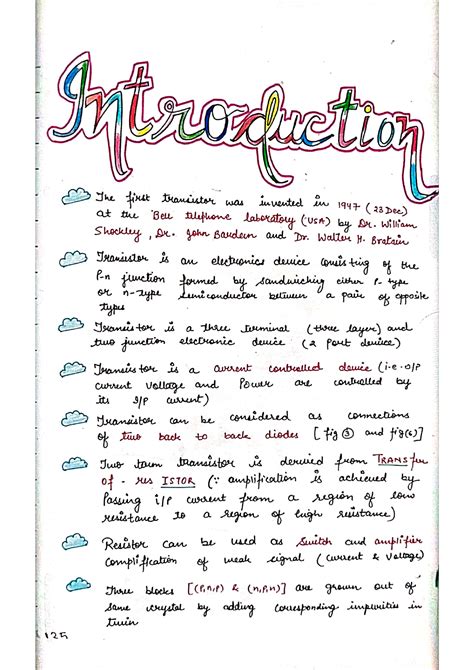 Introduction
The first transistor was invented in 1947 (23 Dec)
at the Bell telephone laboratory (USA) by Dr. William
Shockley, Dr. John Bardeen and Dr. Walter H. Bratain
Transistor is an electronics device consisting of the
P-n junction formed by sandwiching either P-type
or n-type semiconductor between a pair of opposite
types
Transistor is a three terminal (three layer) and
two junction electronic device (2 Port device)
Transistor is a current controlled device (i.e. O/P
current voltage and Power are controlled by
its I/P current)
Transistor can be considered as connections
of two back to back diodes [fig and fig(6)]
Two term transistor is derived from TRANSfer
of - res ISTOR (∵ amplification is achieved by
Passing i/p current from a region of low
resistance to a region of high resistance)
Resistor can be used as Switch and amplifier
complification of weak signal (current & voltage)
Three blocks [(P,n,P) & (n,P,n)] are grown out of
same crystal by adding corresponding impurities in
125